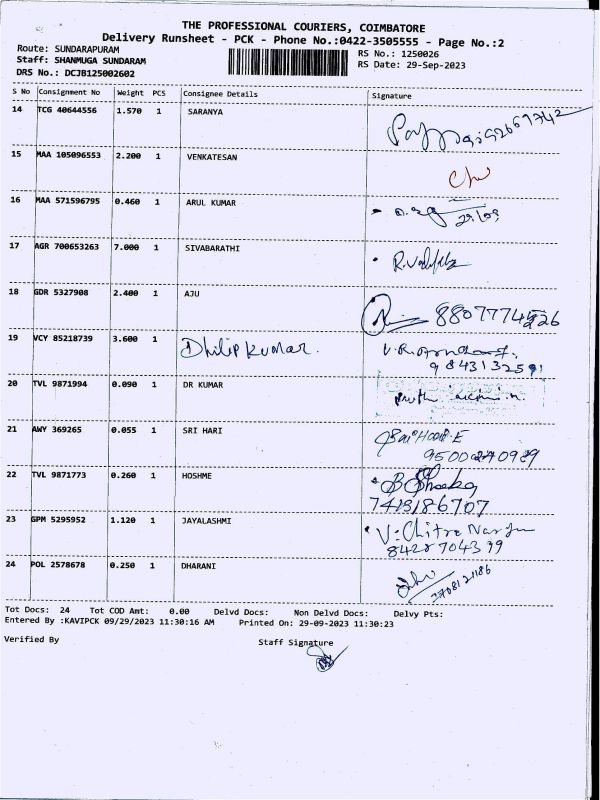 THE PROFESSIONAL COURIERS, COIMBATORE
Delivery Runsheet - PCK - Phone No.:0422-3505555 - Page No.:2
Route: SUNDARAPURAM
RS No.: 1250026
Staff: SHANMUGA SUNDARAM
RS Date: 29-Sep-2023
DRS No.: DCJB125002602
S No Consignment No Weight PCS Consignee Details Signature
14 TCG 40644556 1.570 1 SARANYA
15 MAA 105096553 2.200 1 VENKATESAN
16 MAA 571596795 0.460 1 ARUL KUMAR
29/09
17 AGR 700653263 7.000 1 SIVABARATHI
18 GDR 5327908 2.400 1 AJU
19 VCY 85218739 3.600 1 Dhilip Kumar.
20 TVL 9871994 0.090 1 DR KUMAR
21 AWY 369265 0.055 1 SRI HARI
22 TVL 9871773 0.260 1 HOSHME
7418186707
23 GPM 5295952 1.120 1 JAYALASHMI
V. Chitra
24 POL 2578678 0.250 1 DHARANI
Tot Docs: 24 Tot COD Amt: 0.00 Delvd Docs: Non Delvd Docs: Delvy Pts:
Entered By :KAVIPCK 09/29/2023 11:30:16 AM Printed On: 29-09-2023 11:30:23
Verified By Staff Signature